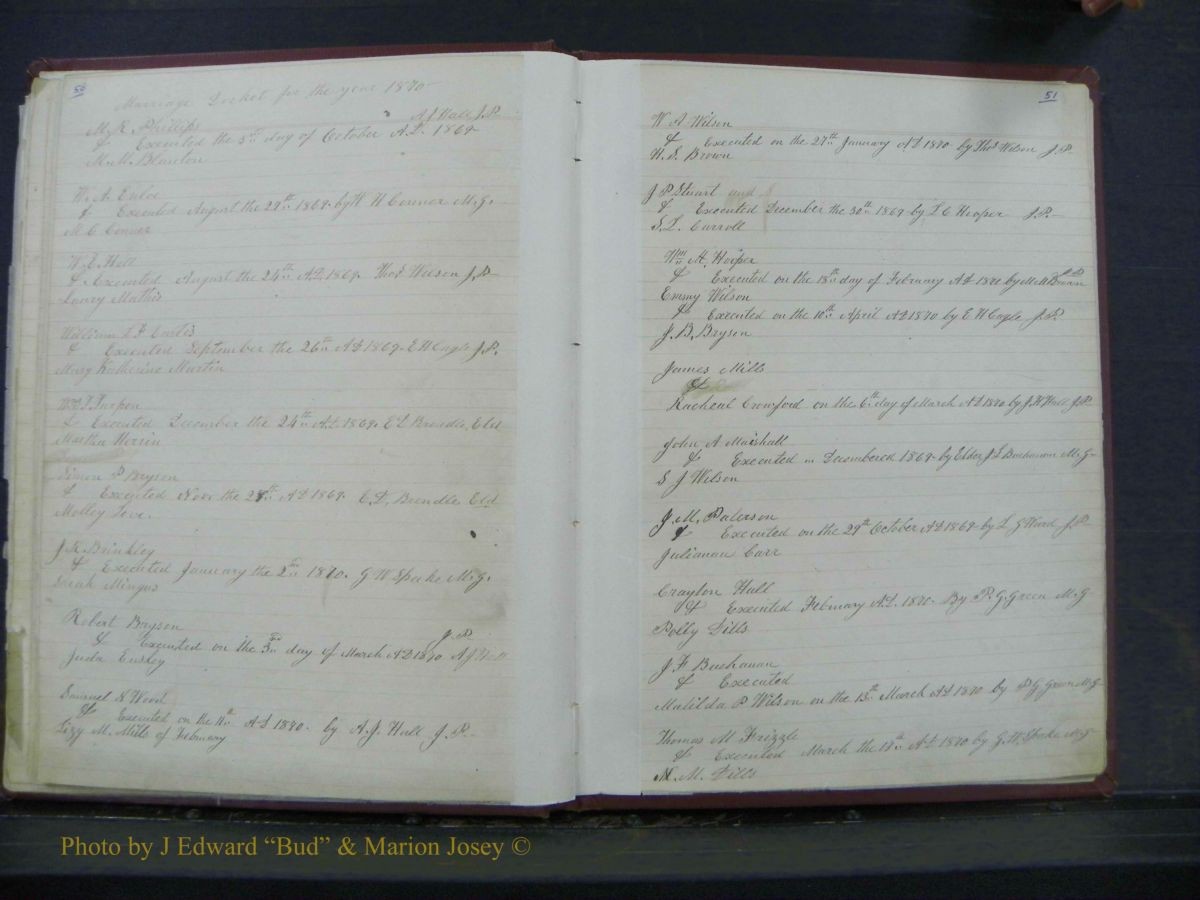 50
Marriage Docket for the year 1870
M. R. Phillips A J Hall J.P.
& Executed the 3rd day of October A.D. 1869
M. M. Blanton
W. A. Enloe
& Executed August the 29th 1869 by W H Conner M.G.
M C Conner
W. E. Hall
& Executed August the 24th A.D. 1869. Thos Wilson J.P.
Mathis
William
& Executed September the 26th A.D. 1869. E H Cagle J.P.
Mary Katherine Martin
& Executed December the 24th A.D. 1869. Eld
Martha Herrin
Simon P Bryson
& Executed Novr the 28th A.D. 1869. Brendle Eld
Molley Love.
J. R. Brinkley
& Executed January the 2nd 1870. G W Speake M.G.
Mingus
Robert Bryson J.P.
& Executed on the 3rd day of March A.D 1870 A J Hall
Juda
Samuel N Wood
& Executed on the 11th A.D 1870. by A. J. Hall J.P.
Lizy M. Mills of February
51
W A Wilson
& Executed on the 27th January A.D 1870 by Thos Wilson J.P.
H. S. Brown
J P Stuart and
& Executed December the 30th 1869 by L C Hooper J.P.
S. L. Carroll
Wm H. Hooper
& Executed on the 18th day of February A.D 1870 by M M Brown J.P.
Emmy Wilson
& Executed on the 10th April A.D 1870 by E H Cagle J.P.
J. B. Bryson
James Mills
&
Racheal Crowford on the 6th day of March A.D 1870 by J. H. Hall J.P.
John A Marshall
& Executed in Decembered 1869 by Elder J. L Buchanan M.G
S J Wilson
J. M. Paterson
& Executed on the 29th October A.D 1869 by L G Ward J.P.
Julianan Carr
Crayton Hall
& Executed February A.D. 1870 By P. G. Green M.G
Polby Dills
J F Buchanan
& Executed
Matilda P Wilson on the 13th March A.D 1870 by P G Green M.G
Thomas M Frizzle
& Executed March the 17th A.D 1870 by G. W. Speake M.G
N. M. Dills
Photo by J Edward “Bud” & Marion Josey ©